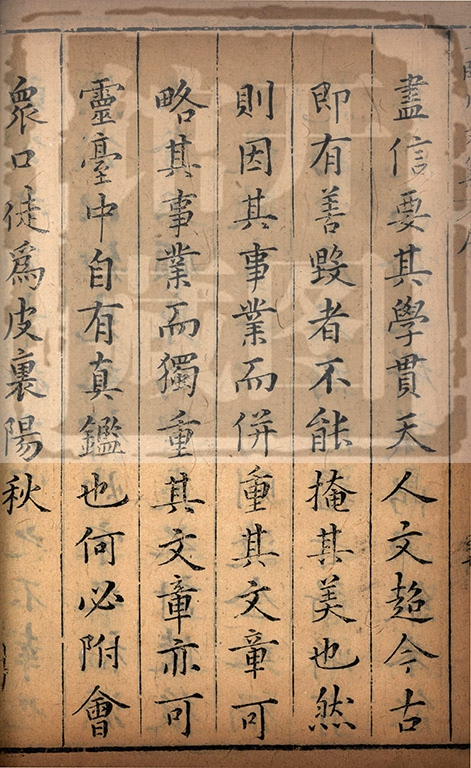 盡信要其學貫天人文超今古
即有善毀者不能掩其美也然
則因其事業而併重其文章可
略其事業而獨重其文章亦可
靈臺中自有真鑑也何必附會
衆口徒爲皮裏陽秋